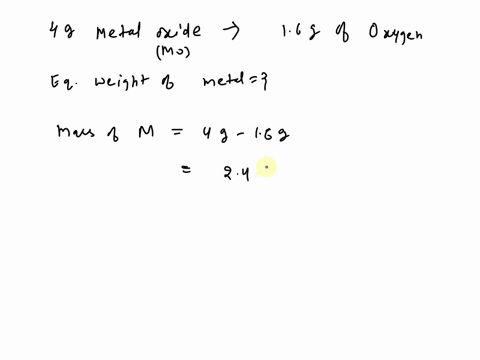 4g Metal oxide → 1.6 g of Oxygen
(MO)
Eq. weight of metal = ?
Mass of M = 4 g - 1.6 g
= 2.4